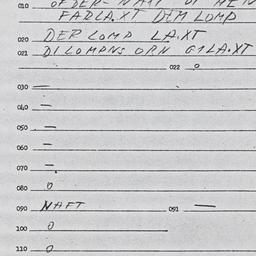 010 OF DER- NAFT
FADLA.XT DEM LOMP
020 DER LOMP LA.XT
021 DILOMPNS ORN G1LA.XT
022 0
030 —
040 —
050 —
060 —
070 —
080 0
090 NAFT 091 —
100 0
110 0